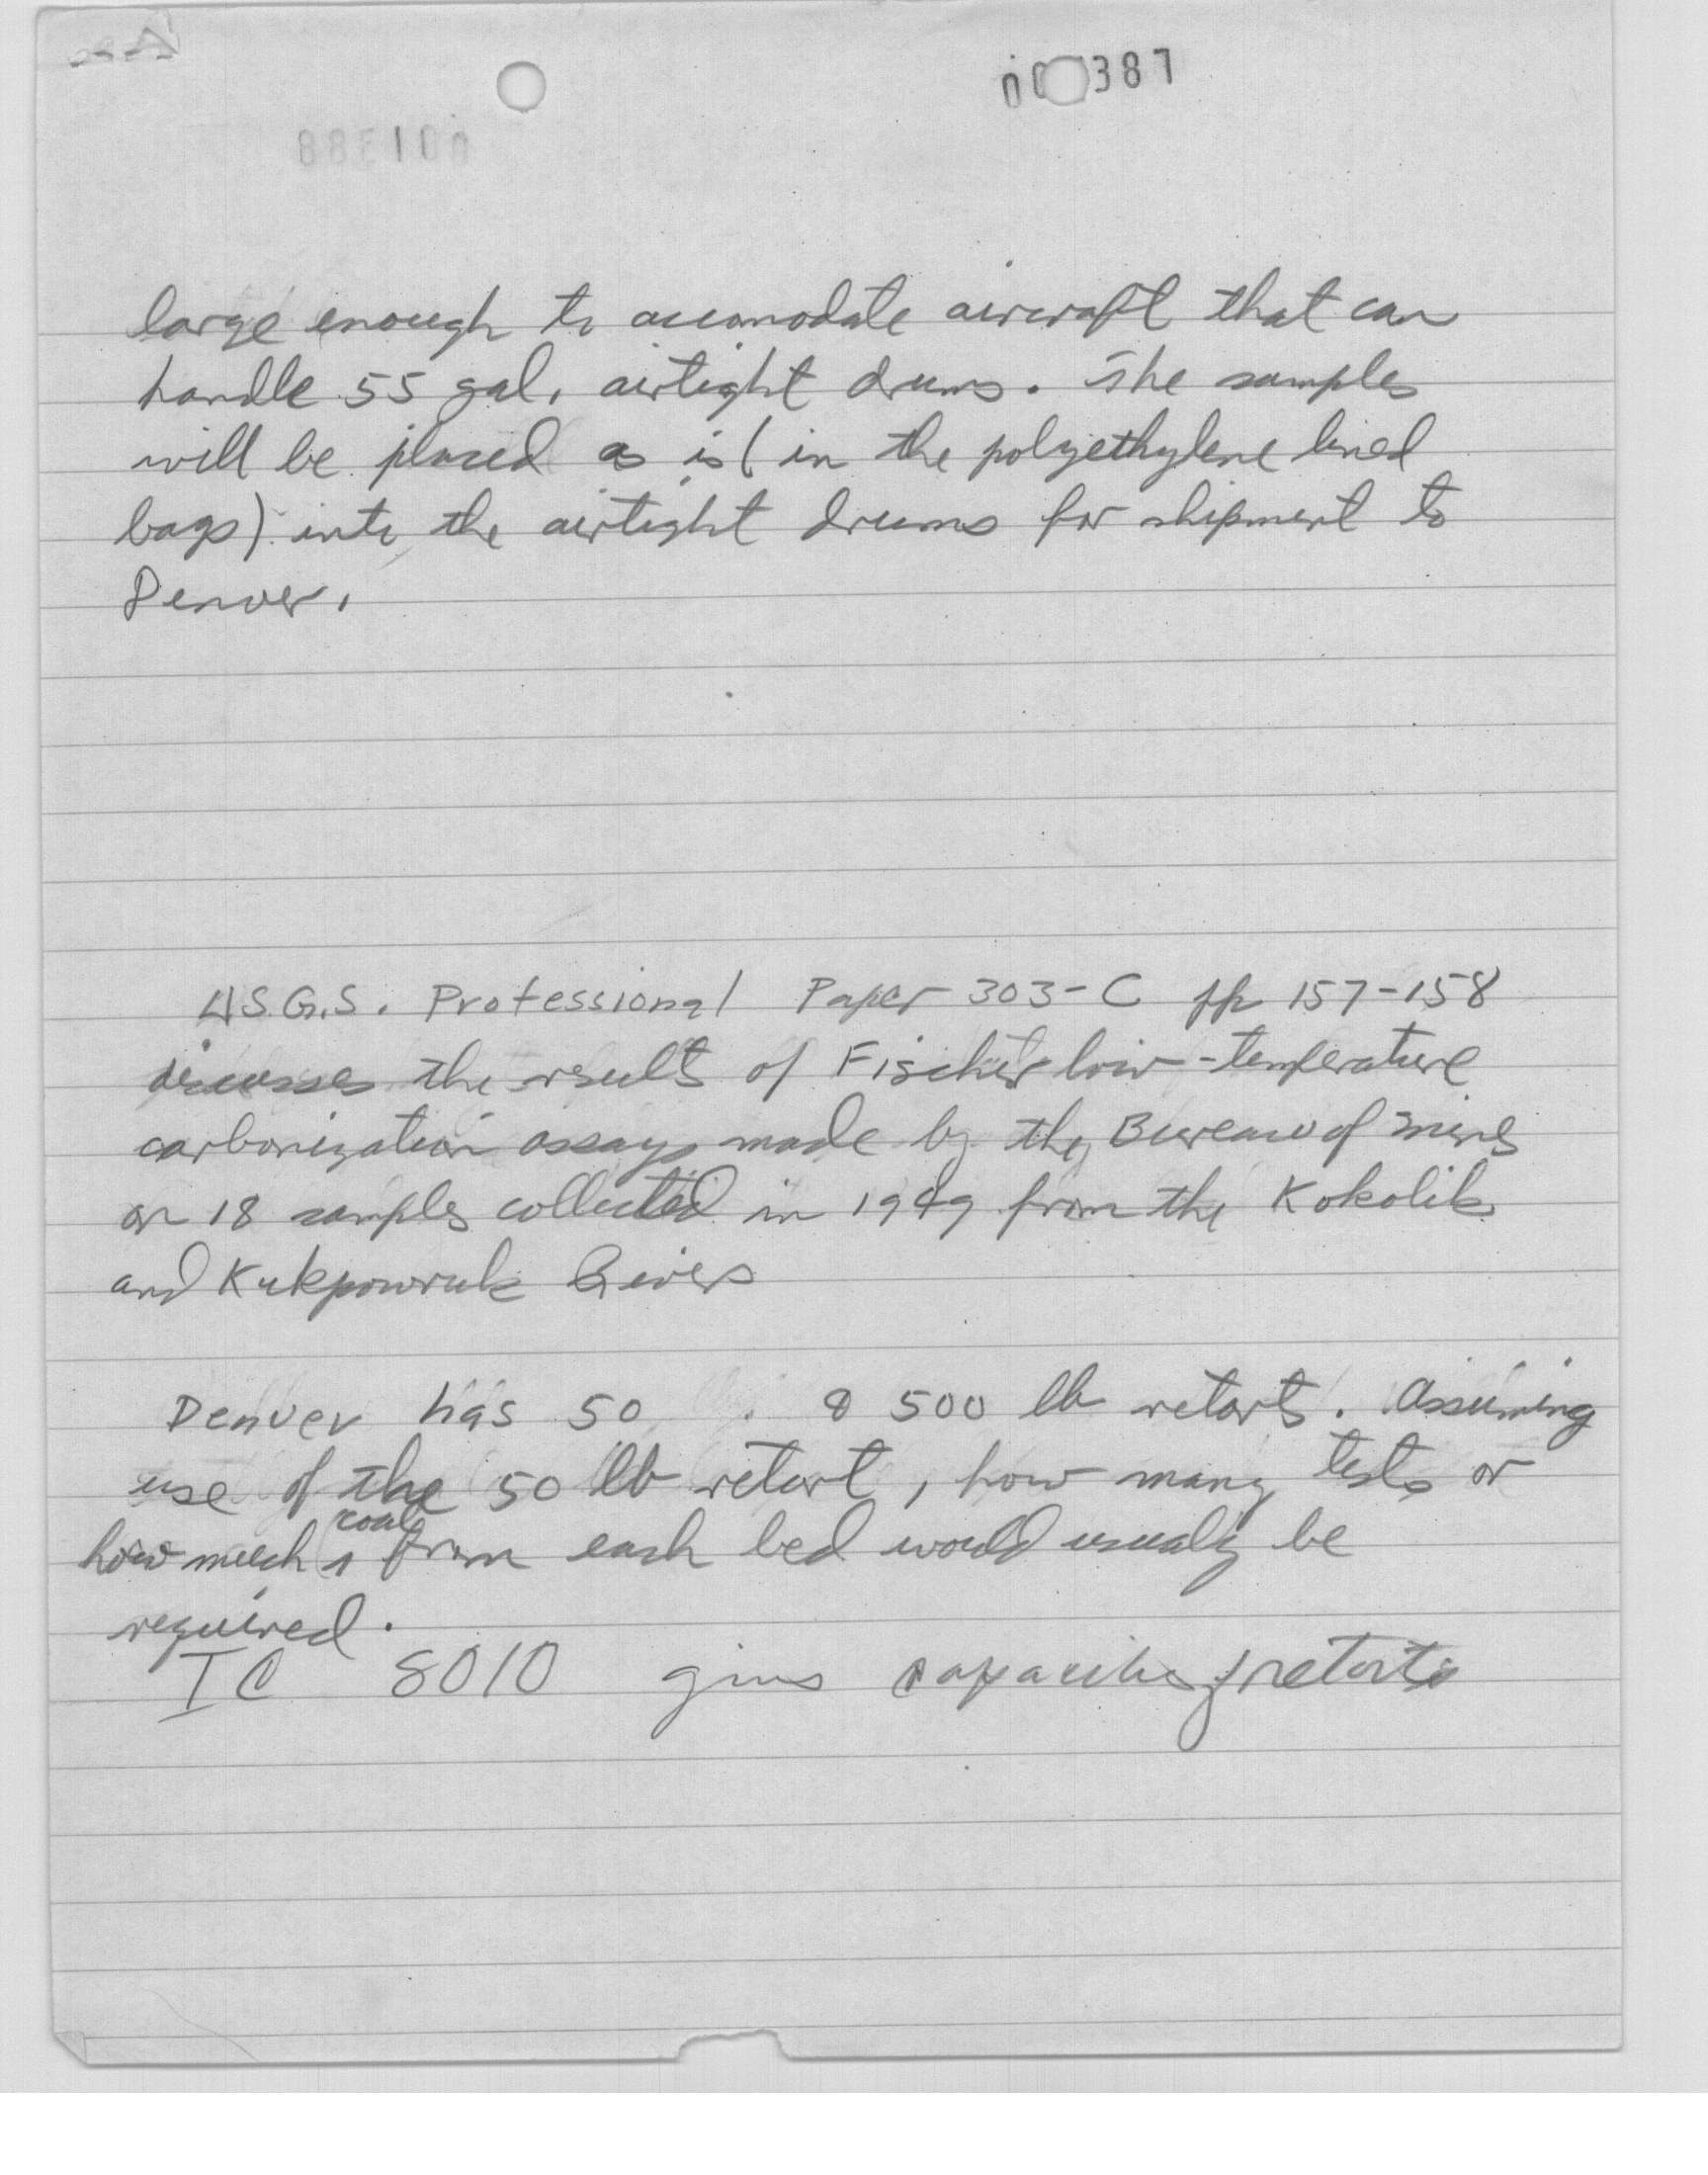 387
large enough to accomodate aircraft that can
handle 55 gal. airtight drums. The samples
will be placed as is (in the polyethylene lined
bags) into the airtight drums for shipment to
Denver.
U.S.G.S. Professional Paper 303-C pp 157-158
discusses the results of Fischer low-temperature
carbonization assays made by the Bureau of Mines
on 18 samples collected in 1949 from the Kokolik
and Kukpowruk Rivers
Denver has 50 & 500 lb retorts. Assuming
use of the 50 lb retort, how many tests or
coal
how much from each bed would usually be
required.
IC 8010 gives capacities of retorts